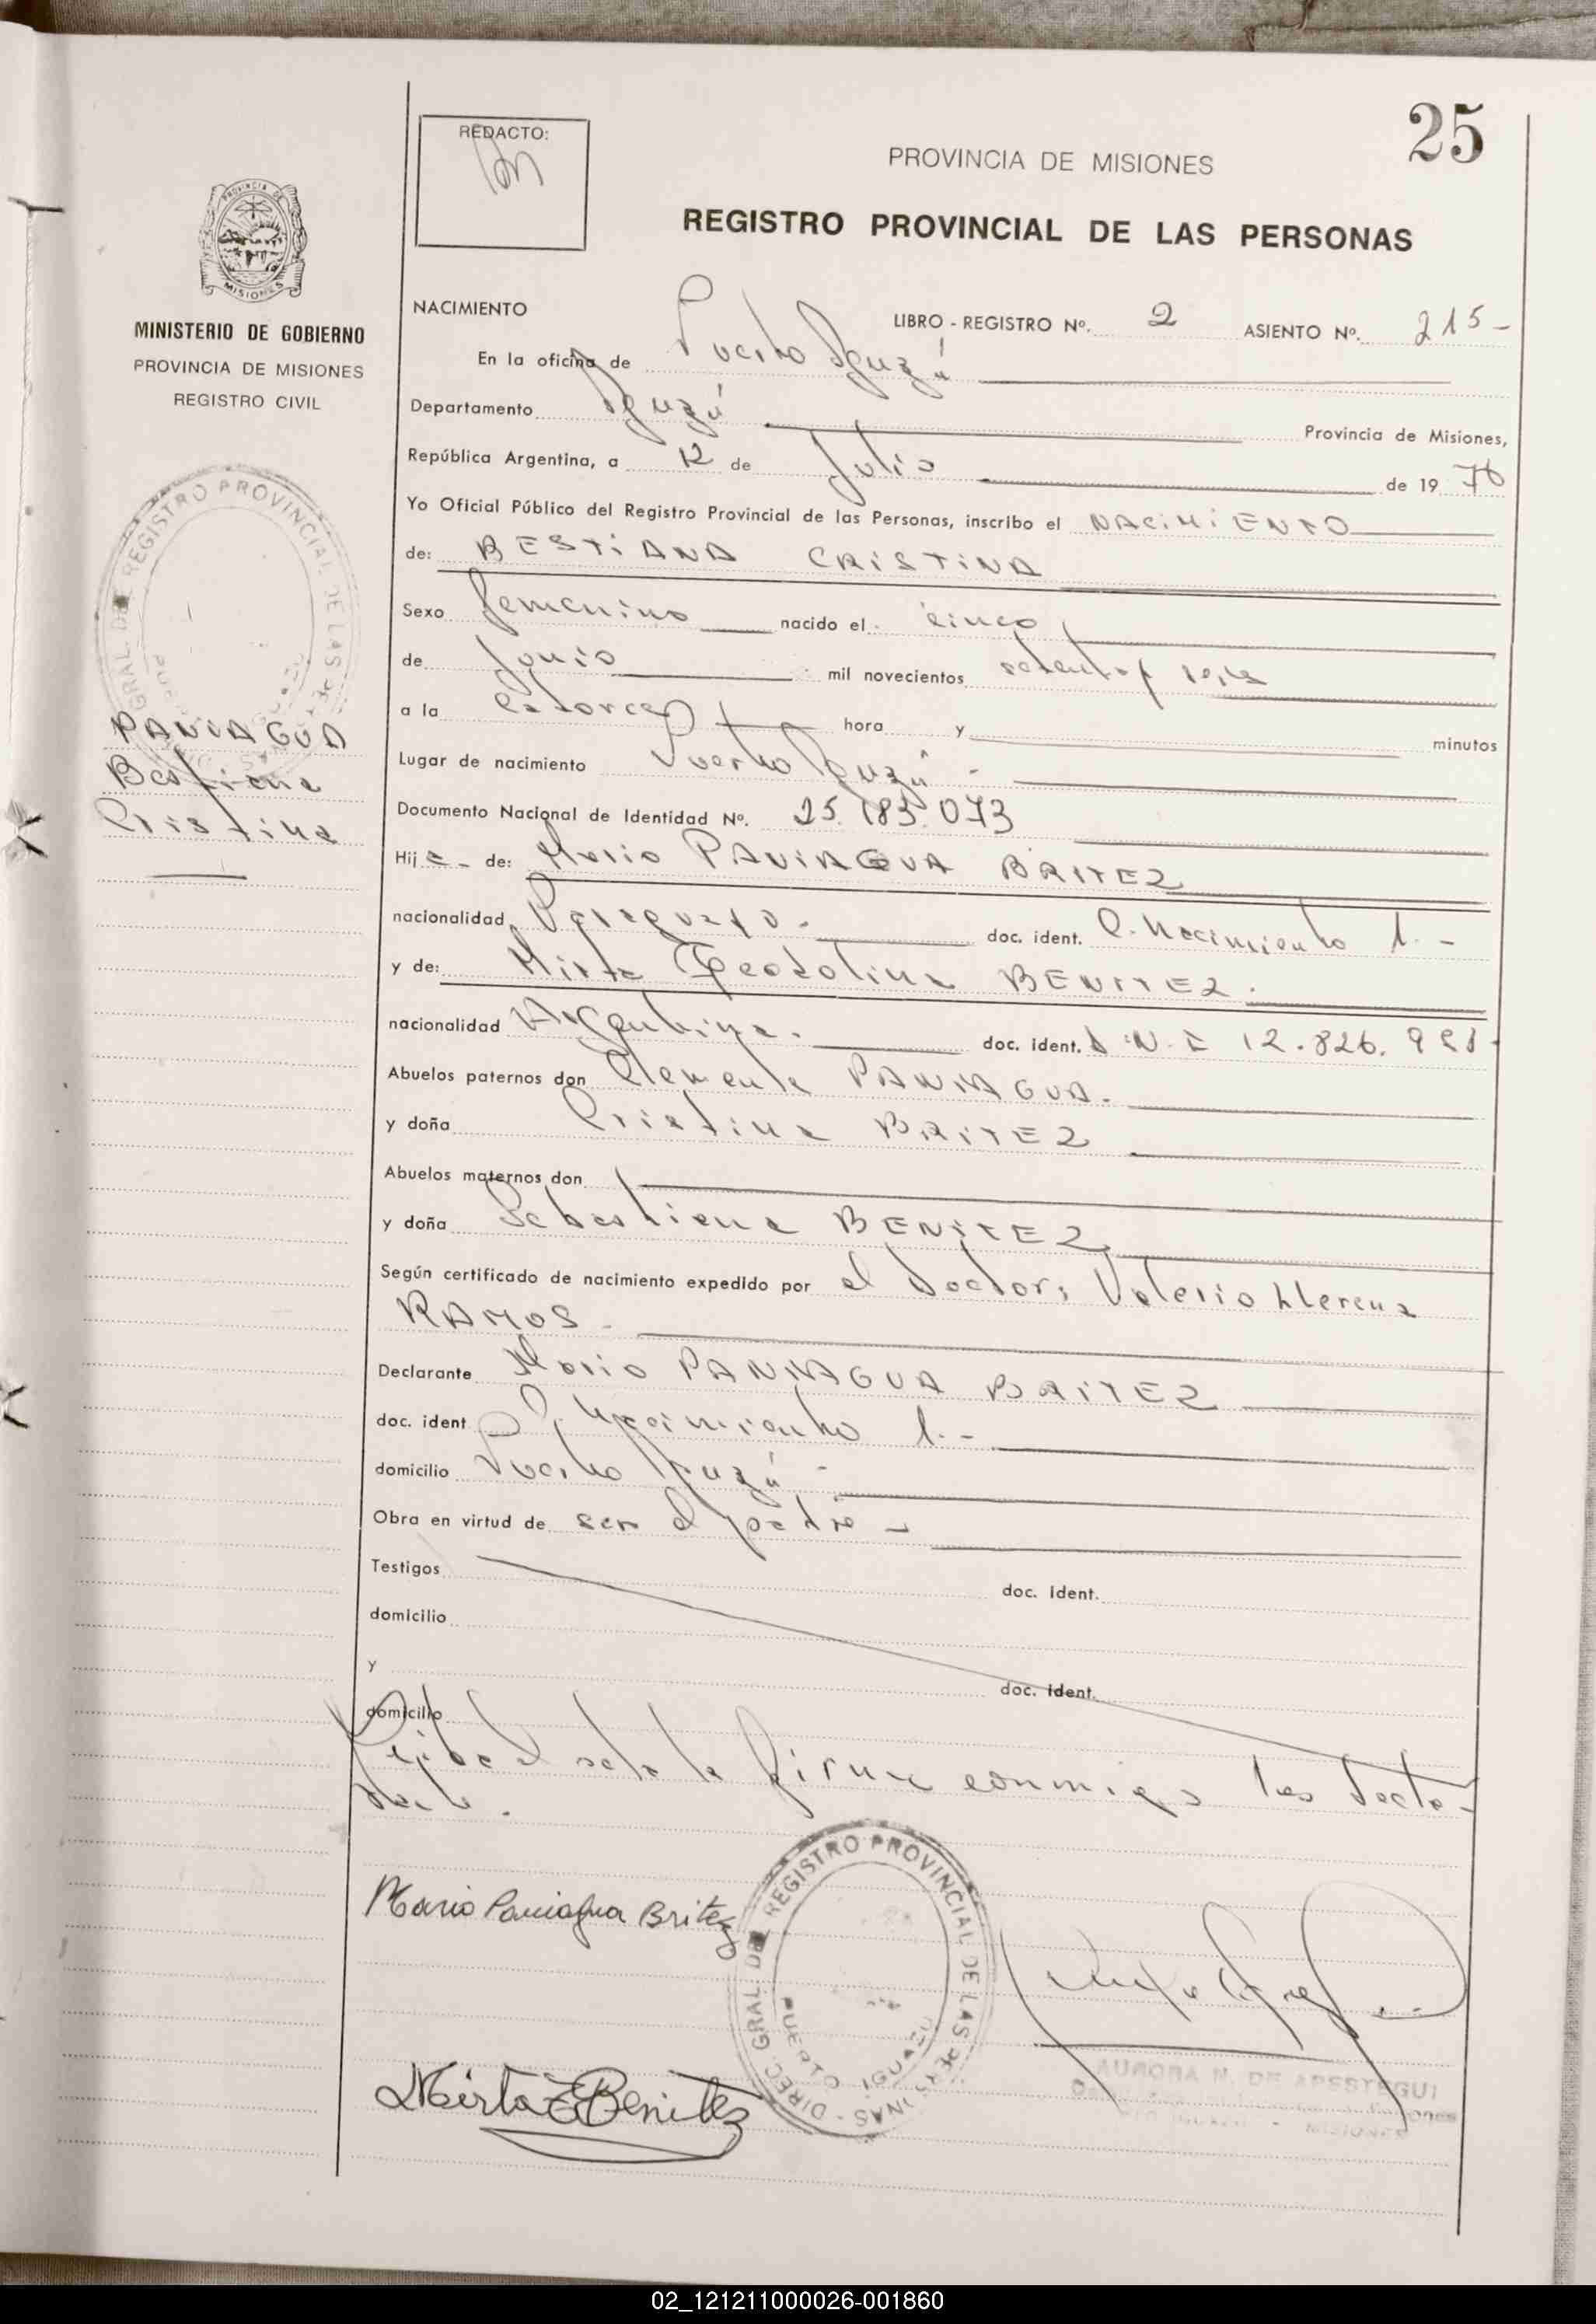 25
REDACTO:
PROVINCIA DE MISIONES
REGISTRO PROVINCIAL DE LAS PERSONAS
PROVINCIA DE
MISIONES
MINISTERIO DE GOBIERNO
PROVINCIA DE MISIONES
REGISTRO CIVIL
DIREC. GRAL. DEL REGISTRO PROVINCIAL DE LAS
PANIAGUA
Bestiana
Cristina
NACIMIENTO LIBRO - REGISTRO Nº. 2 ASIENTO Nº. 215-
En la oficina de Puerto Iguazú
Departamento Iguazú Provincia de Misiones,
República Argentina, a 12 de Julio de 19 76
Yo Oficial Público del Registro Provincial de las Personas, inscribo el NACIMIENTO
de: BESTIANA CRISTINA
Sexo femenino nacido el cinco
de Junio mil novecientos setenta y seis
a la catorce hora y minutos
Lugar de nacimiento Puerto Iguazú -
Documento Nacional de Identidad Nº. 25.183.073
Hija - de: Mario PANIAGUA BRITEZ
nacionalidad Paraguayo. doc. ident. C. Nacimiento 1.-
y de: Mirta BENITEZ.
nacionalidad Argentina. doc. ident. D.N.I 12.826.991
Abuelos paternos don Clemente PANIAGUA.
y doña Cristina BRITEZ
Abuelos maternos don
y doña Sebastiana BENITEZ
Según certificado de nacimiento expedido por el Doctor; Valerio Llerena
RAMOS -
Declarante Mario PANIAGUA BRITEZ
doc. ident C. Nacimiento 1.-
domicilio Puerto Iguazú -
Obra en virtud de ser el padre -
Testigos doc. ident.
domicilio
y doc. ident.
domicilio
Leída el acta la firma conmigo los decla-
Mario Paniagua Britez
DIREC. GRAL. DEL REGISTRO PROVINCIAL DE LAS PERSONAS -
PUERTO IGUAZU
Mirta E Benitez
AURORA N. DE APESTEGUI
MISIONES
02_121211000026-001860